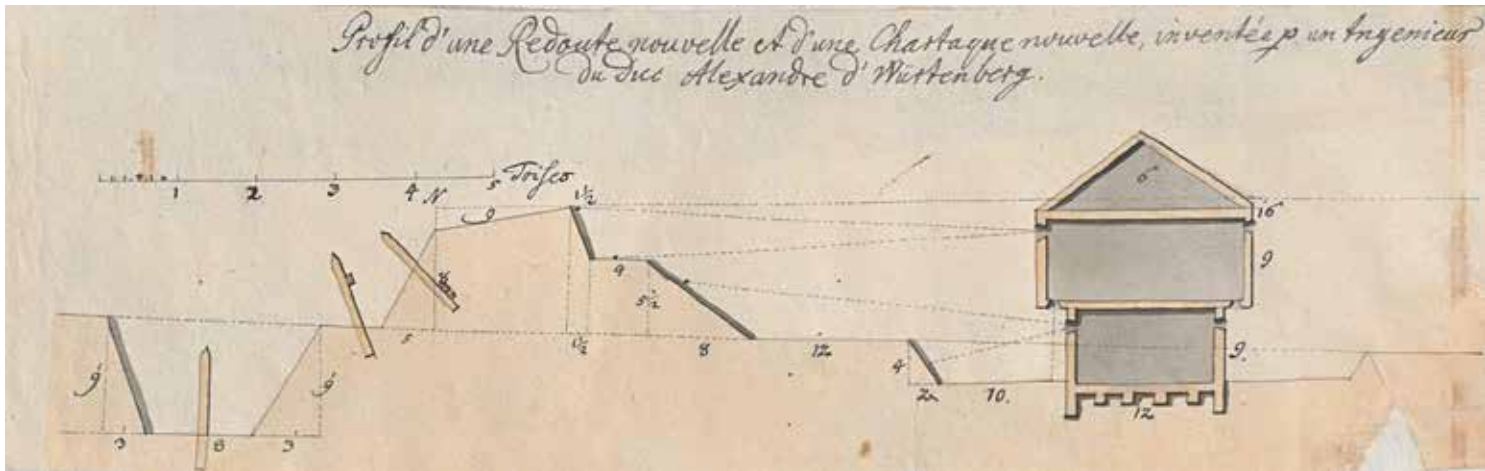 Profil d'une Redoute nouvelle et d'une Chartaque nouvelle, inventée p. un Ingenieur
du Duc Alexandre d'Würtenberg.
1 2 3 4 5 Toises
N 9 1½
6
16
9 9
5½
5 1½ 8 12
4 9
9' 9'
2 10. 12
3 8 3